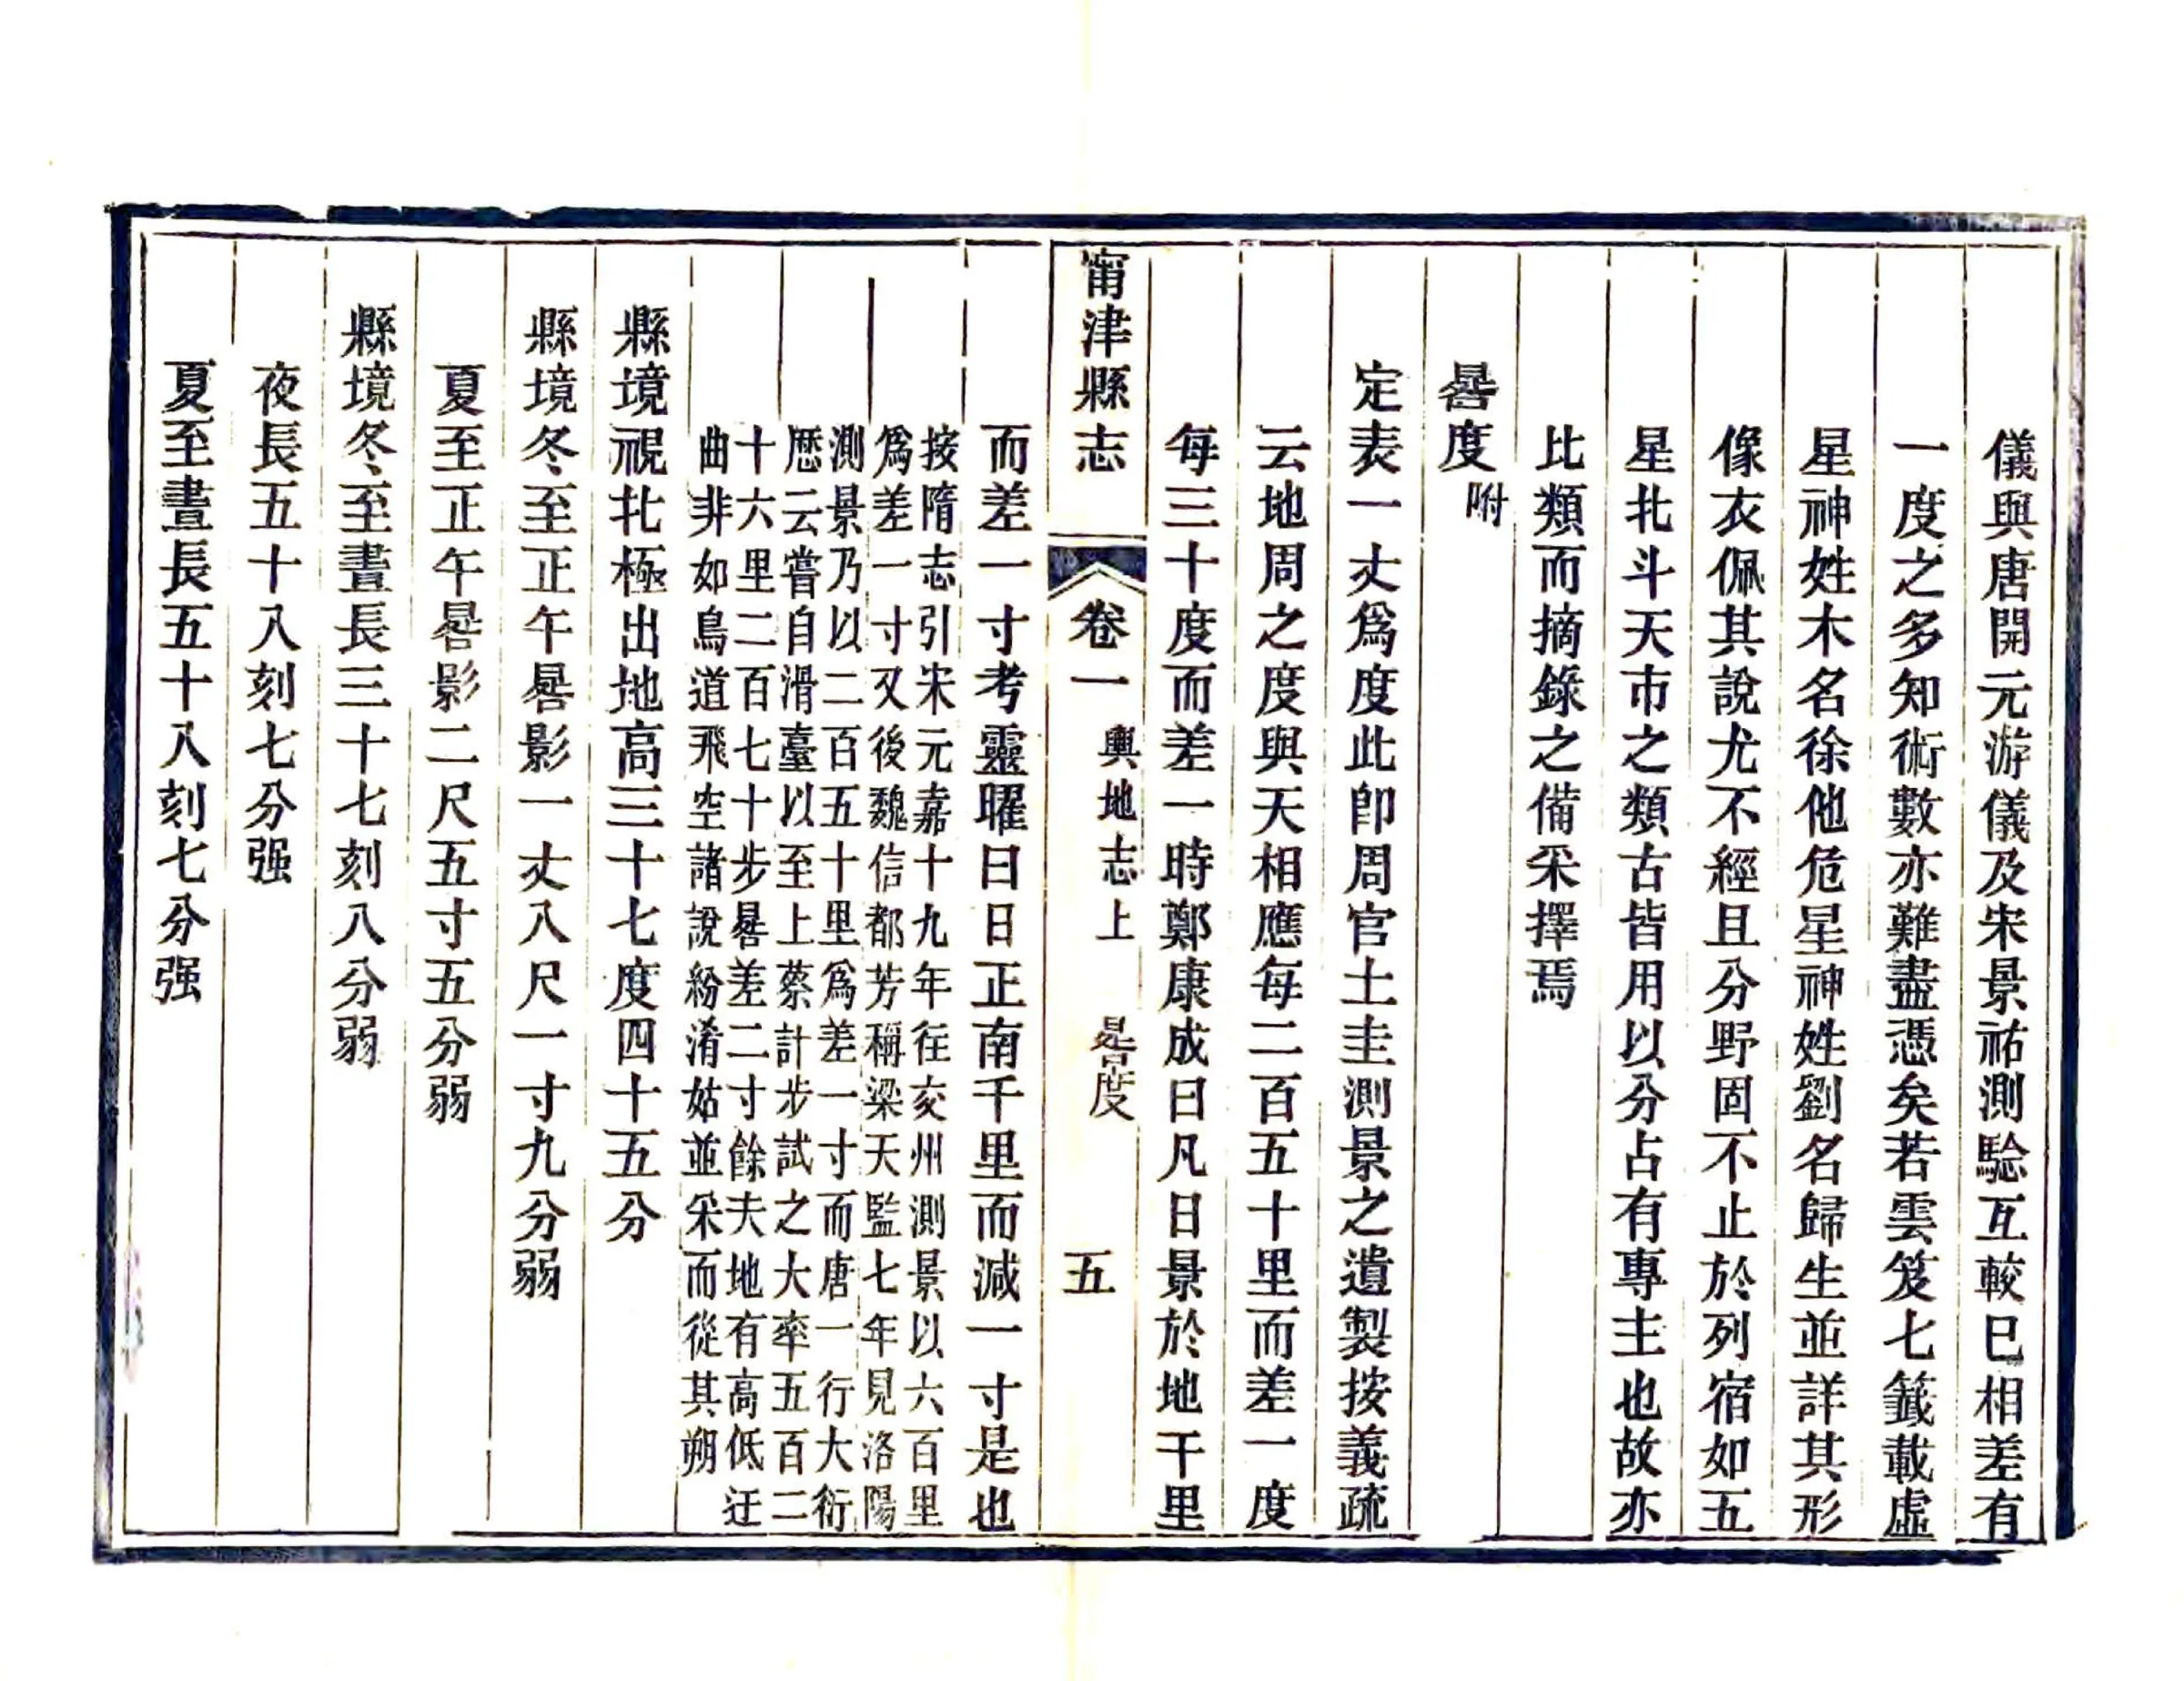 儀與唐開元游儀及宋景祐測驗互較已相差有
一度之多知術數亦難盡憑矣若雲笈七籤載虛
星神姓木名徐他危星神姓劉名歸生並詳其形
像衣佩其說尤不經且分野固不止於列宿如五
星北斗天市之類古皆用以分占有專主也故亦
比類而摘錄之備采擇焉
晷度附
定表一丈爲度此卽周官土圭測景之遺製按義疏
云地周之度與天相應每二百五十里而差一度
每三十度而差一時鄭康成曰凡日景於地千里
甯津縣志 卷一 輿地志上 晷度 五
而差一寸考靈曜曰日正南千里而減一寸是也
按隋志引宋元嘉十九年往交州測景以六百里
爲差一寸又後魏信都芳稱梁天監七年見洛陽
測景乃以二百五十里爲差一寸而唐一行大衍
歷云嘗自滑臺以至上蔡計步試之大率五百二
十六里二百七十步晷差二寸餘夫地有高低迂
曲非如鳥道飛空諸說紛淆姑並采而從其朔
縣境視北極出地高三十七度四十五分
縣境冬至正午晷影一丈八尺一寸九分弱
夏至正午晷影二尺五寸五分弱
縣境冬至晝長三十七刻八分弱
夜長五十八刻七分强
夏至晝長五十八刻七分强